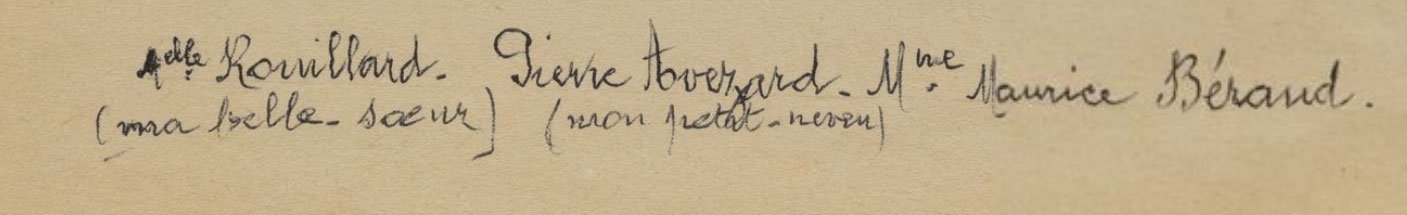 Melle Rouillard. Pierre Averard. Mme Maurice Béraud.
(ma belle-sœur) (mon petit-neveu)